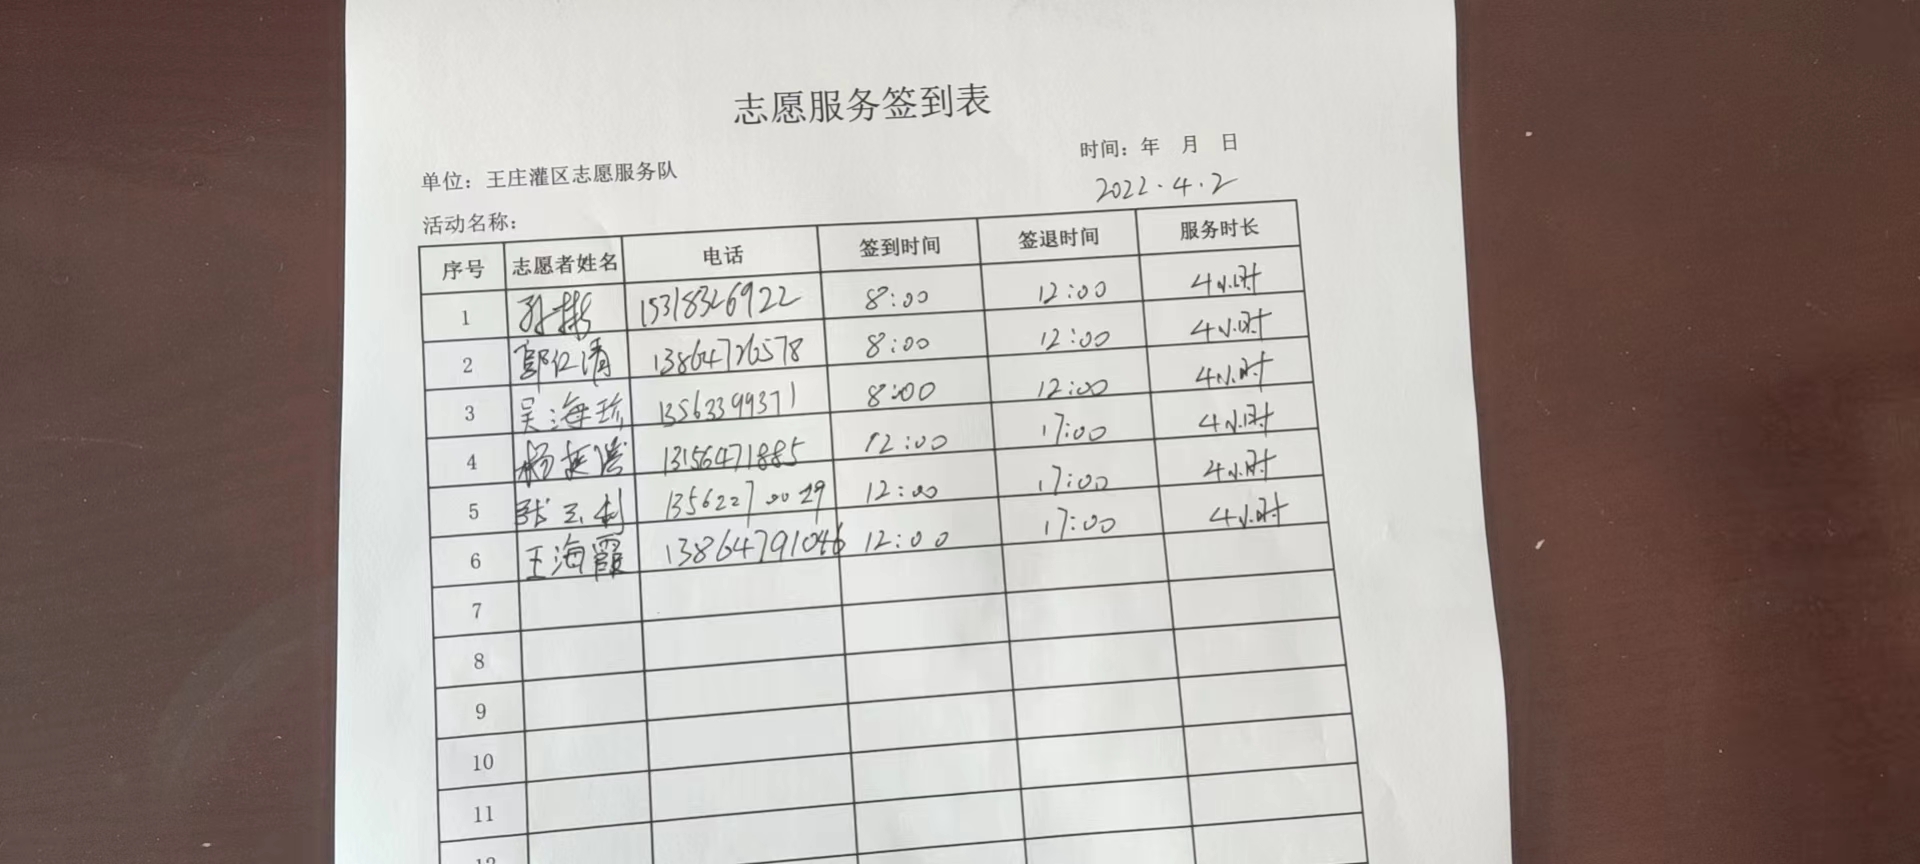 志愿服务签到表
时间：年 月 日
单位：王庄灌区志愿服务队
2022.4.2
活动名称：
序号 志愿者姓名 电话 签到时间 签退时间 服务时长
1 孙彬 15318326922 8:00 12:00 4小时
2 郭仁清 13864726578 8:00 12:00 4小时
3 吴海珍 13563399371 8:00 12:00 4小时
4 杨 13156471885 12:00 17:00 4小时
5 张玉利 13562270029 12:00 17:00 4小时
6 王海霞 13864791046 12:00 17:00 4小时
7
8
9
10
11